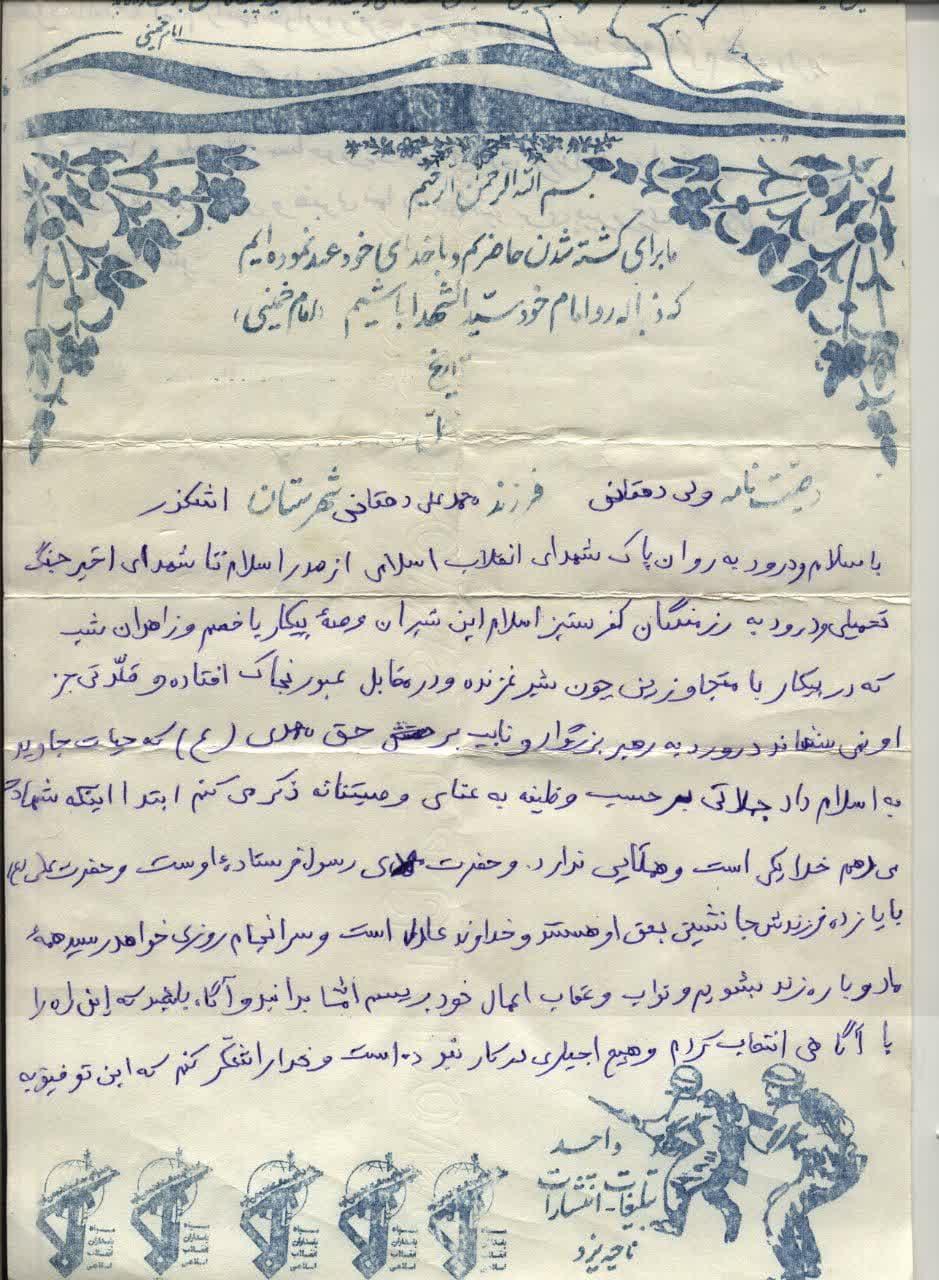 امام خمینی
بسم الله الرحمن الرحیم
ما برای کشته شدن حاضریم و با خدای خود عهد نموده‌ایم
که دنباله رو امام خود سیدالشهدا باشیم (امام خمینی)
تاریخ
وصیت نامه ولی دهقانی فرزند محمد علی دهقانی شهرستان اشکذر
با سلام و درود به روان پاک شهدای انقلاب اسلامی از صدر اسلام تا شهدای اخیر جنگ
تحمیلی و درود به رزمندگان کفر ستیز اسلام این شیران عرصهٔ پیکار با خصم و زاهدان شب
که در پیکار با متجاوزین چون شیر غرنده و در مقابل معبود بخاک افتاده و قدرتی جز
او نمی شناسند درورد به رهبر بزرگوار و نایب بر حق مهدی (عج) که حیات جاوید
به اسلام داد جملاتی بر حسب وظیفه به عنوان وصیتنامه ذکر می کنم ابتدا اینکه شهادت
می دهم خدا یکی است و همتایی ندارد و حضرت محمد رسول فرستادهٔ اوست و حضرت علی (ع)
با یازده فرزندش جانشین بحق او هستند و خداوند عادل است و سرانجام روزی خواهد رسید همهٔ
ما دوباره زنده بشویم و ثواب و عقاب اعمال خود برسیم بدانید و آگاه باشید که این راه را
با آگاهی انتخاب کردم و هیچ اجباری در کار نبوده است و خدا را تشکر کنم که این توفیق به
واحد
تبلیغات-انتشارات
ناحیه یزد
سپاه پاسداران انقلاب اسلامی
سپاه پاسداران انقلاب اسلامی
سپاه پاسداران انقلاب اسلامی
سپاه پاسداران انقلاب اسلامی
سپاه پاسداران انقلاب اسلامی